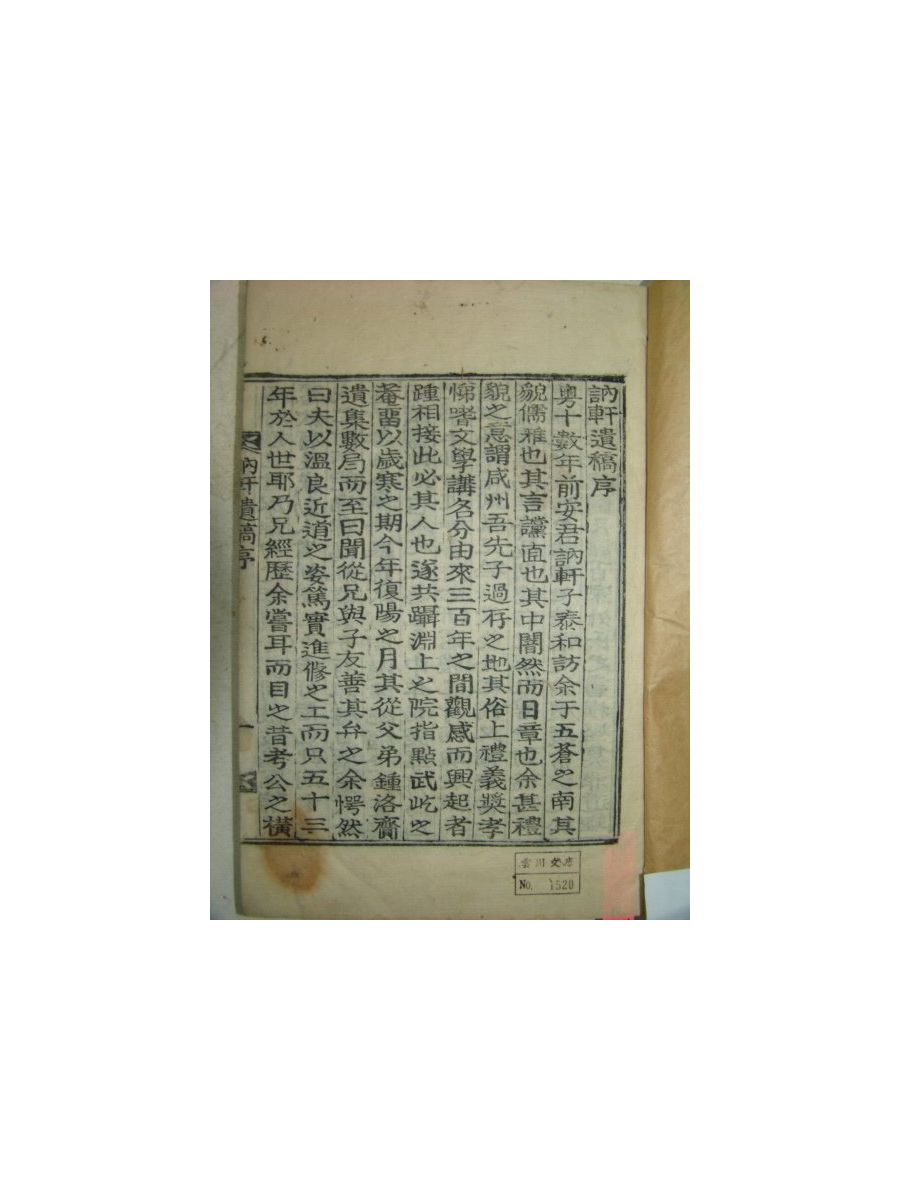 訥軒遺稿序
粤十數年前安君訥軒子泰和訪余于五蒼之南其
貌儒雅也其言讜直也其中闇然而日章也余甚禮
貌之意謂咸州吾先子過存之地其俗上禮義獎孝
悌嗜文學講名分由來三百年之間觀感而興起者
踵相接此必其人也遂共躡淵上之院指點武屹之
菴留以歲寒之期今年復陽之月其從父弟鍾洛齎
遺集數局而至曰聞從兄與子友善其弁之余愕然
曰夫以溫良近道之姿篤實進修之工而只五十三
年於人世耶乃兄經歷余嘗耳而目之昔考公之橫
訥軒遺稿序
一
No. 1520